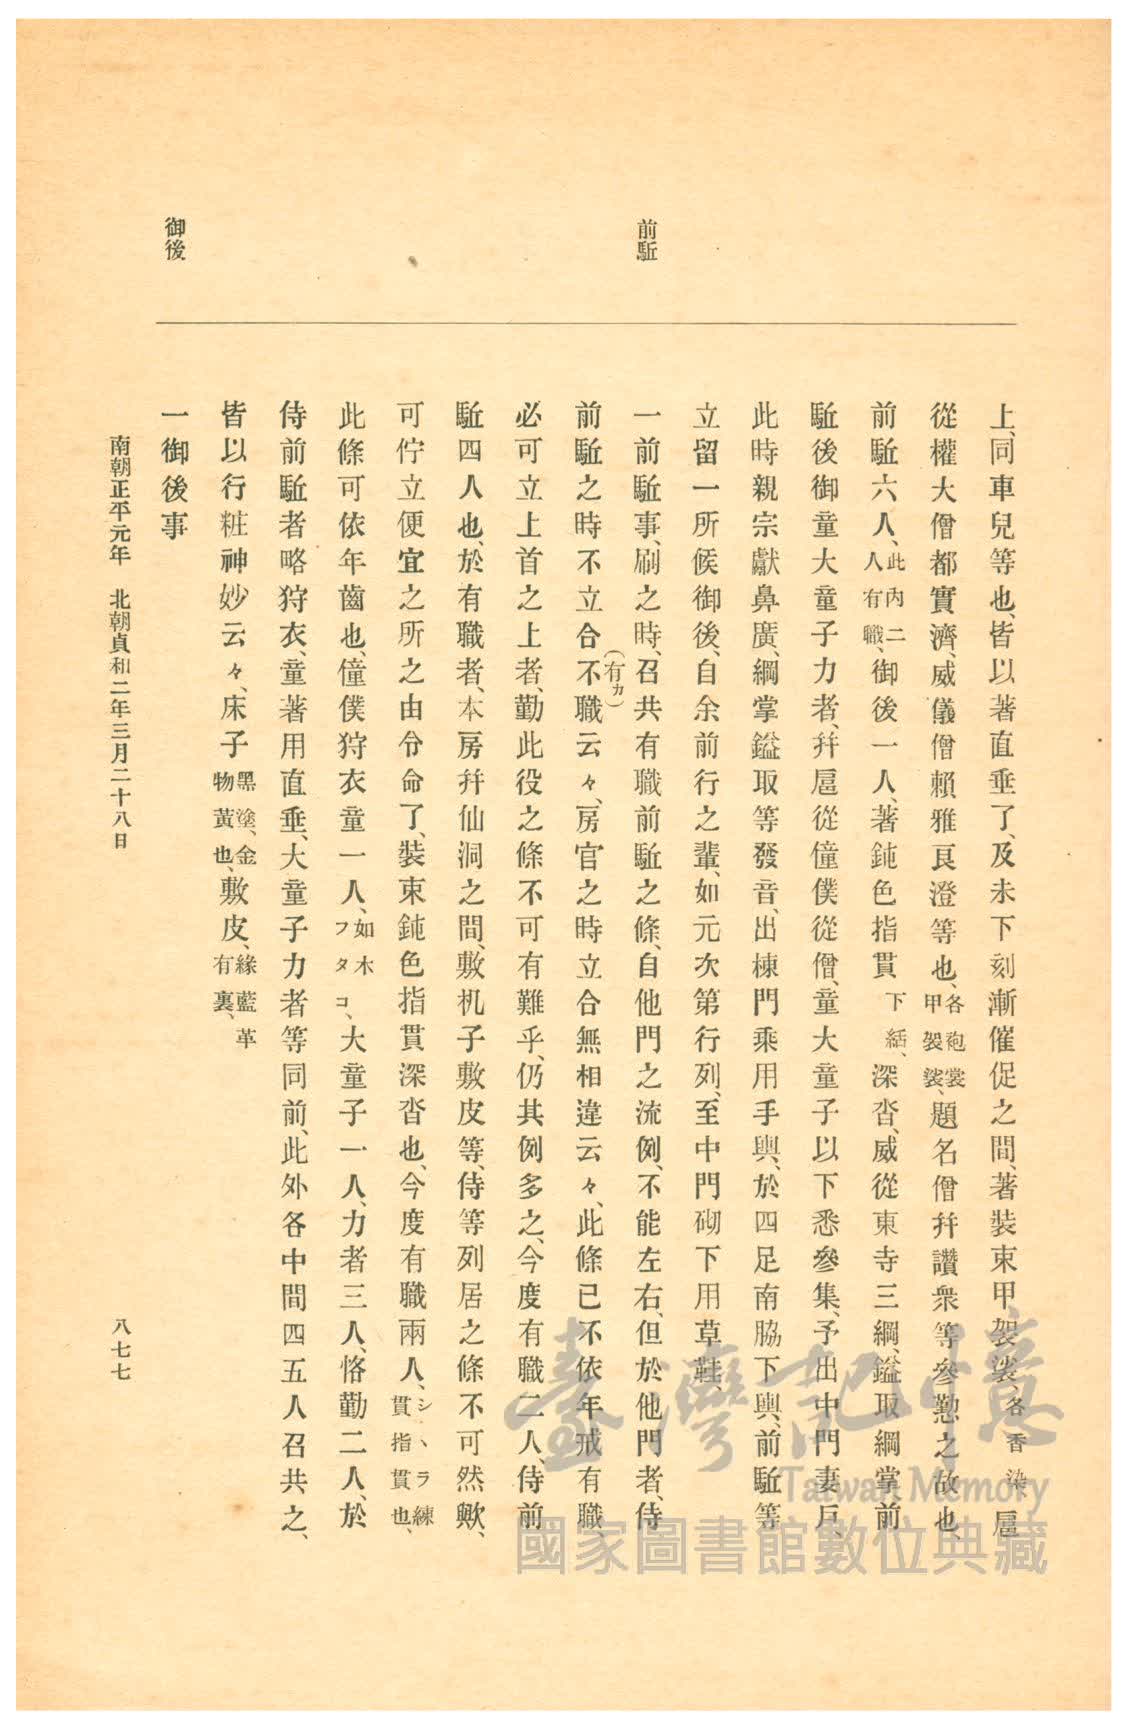 前駈
御後
上、同車兒等也、皆以著直垂了、及未下刻漸催促之間、著裝束甲袈裟、各香染、扈
從權大僧都實濟、威儀僧賴雅頁澄等也、各袍裳甲袈裟、題名僧幷讚衆等參懃之故也、
前駈六人、此內二人有職、御後一人、著鈍色指貫下結、深沓、威從東寺三綱、鎰取綱掌前
駈後御童大童子力者、幷扈從僮僕從僧、童大童子以下悉參集、予出中門妻戶、
此時親宗獻鼻廣、綱掌鎰取等發音、出棟門乘用手輿、於四足南脇下輿、前駈等
立留一所候御後、自余前行之輩、如元次第行列、至中門砌下用草鞋、
一前駈事、刷之時、召共有職前駈之條、自他門之流例、不能左右、但於他門者、侍
前駈之時不立合不(有カ)職云々、房官之時立合無相違云々、此條已不依年戒有職、
必可立上首之上者、勤此役之條不可有難乎、仍其例多之、今度有職二人、侍前
駈四人也、於有職者、本房幷仙洞之間、敷机子敷皮等、侍等列居之條不可然歟、
可佇立便宜之所之由令命了、裝束鈍色指貫深沓也、今度有職兩人、シヽラ練貫指貫也、
此條可依年齒也、僮僕狩衣童一人、如木フタコ、大童子一人、力者三人、恪勤二人、於
侍前駈者略狩衣、童著用直垂、大童子力者等同前、此外各中間四五人召共之、
皆以行粧神妙云々、床子黑塗、金物黃也、敷皮、緣藍革有裏、
一御後事
南朝正平元年　北朝貞和二年三月二十八日
八七七
臺灣記憶
Taiwan Memory
國家圖書館數位典藏